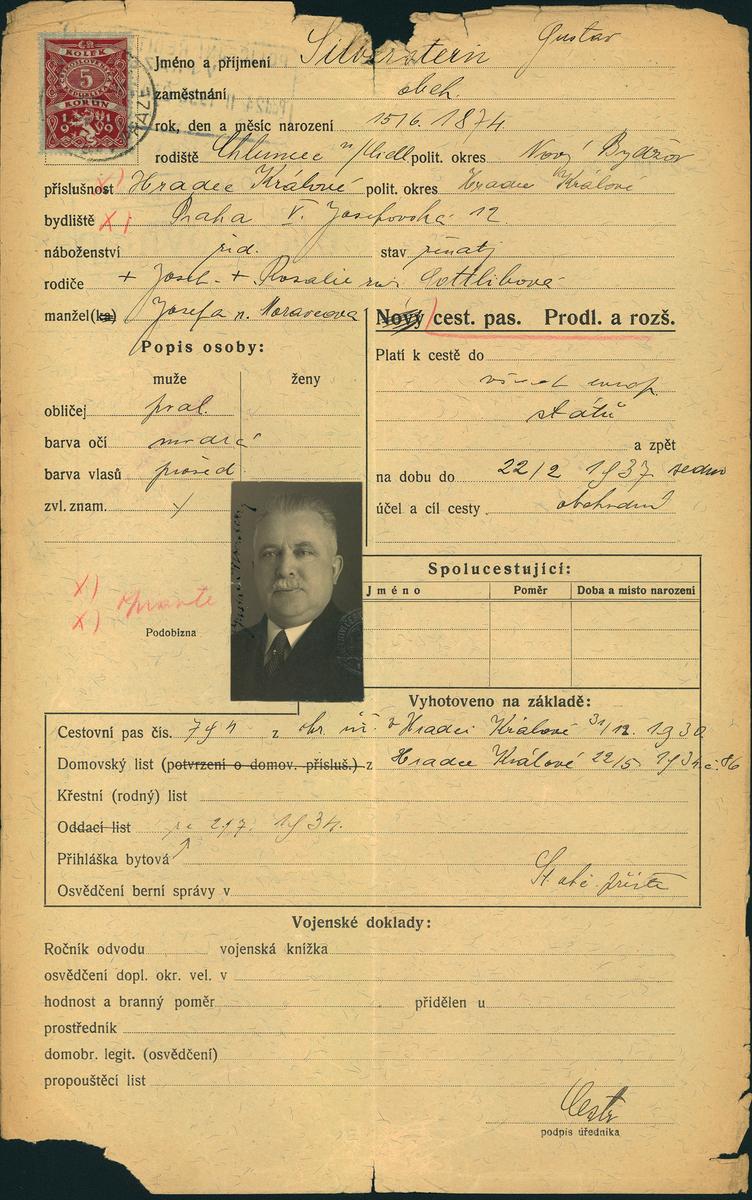 Silberstern Gustav
ČR
KOLEK
5
KORUN
1919
Jméno a příjmení
zaměstnání obch.
rok, den a měsíc narození 15/6. 1874
rodiště Chlumec n/Cidl polit. okres Nový Bydžov
příslušnost x) Hradec Králové polit. okres Hradec Králové
bydliště x) Praha V. Josefovská 12.
náboženství žid. stav ženatý
rodiče + Josef. + Rosalie roz. Gottlibová
manžel(ka) Josefa n. Moravcová
Nový cest. pas. Prodl. a rozš.
Popis osoby:
Platí k cestě do
muže ženy
všech evrop.
obličej oval.
států
barva očí modrá
a zpět
barva vlasů prošed.
na dobu do 22/2 1937
zvl. znam.
účel a cíl cesty obchodní
Spolucestující:
Jméno Poměr Doba a místo narození
x)
x)
Podobizna
Vyhotoveno na základě:
Cestovní pas čís. z okr. úř. v Hradci Králové 31/12. 1930
Domovský list (potvrzení o domov. přísluš.) z Hradec Králové 22/5 1934 č. 86
Křestní (rodný) list
Oddací list 1934.
Přihláška bytová
Osvědčení berní správy v
St. obč. příště
Vojenské doklady:
Ročník odvodu vojenská knížka
osvědčení dopl. okr. vel. v
hodnost a branný poměr přidělen u
prostředník
domobr. legit. (osvědčení)
propouštěcí list
podpis úředníka